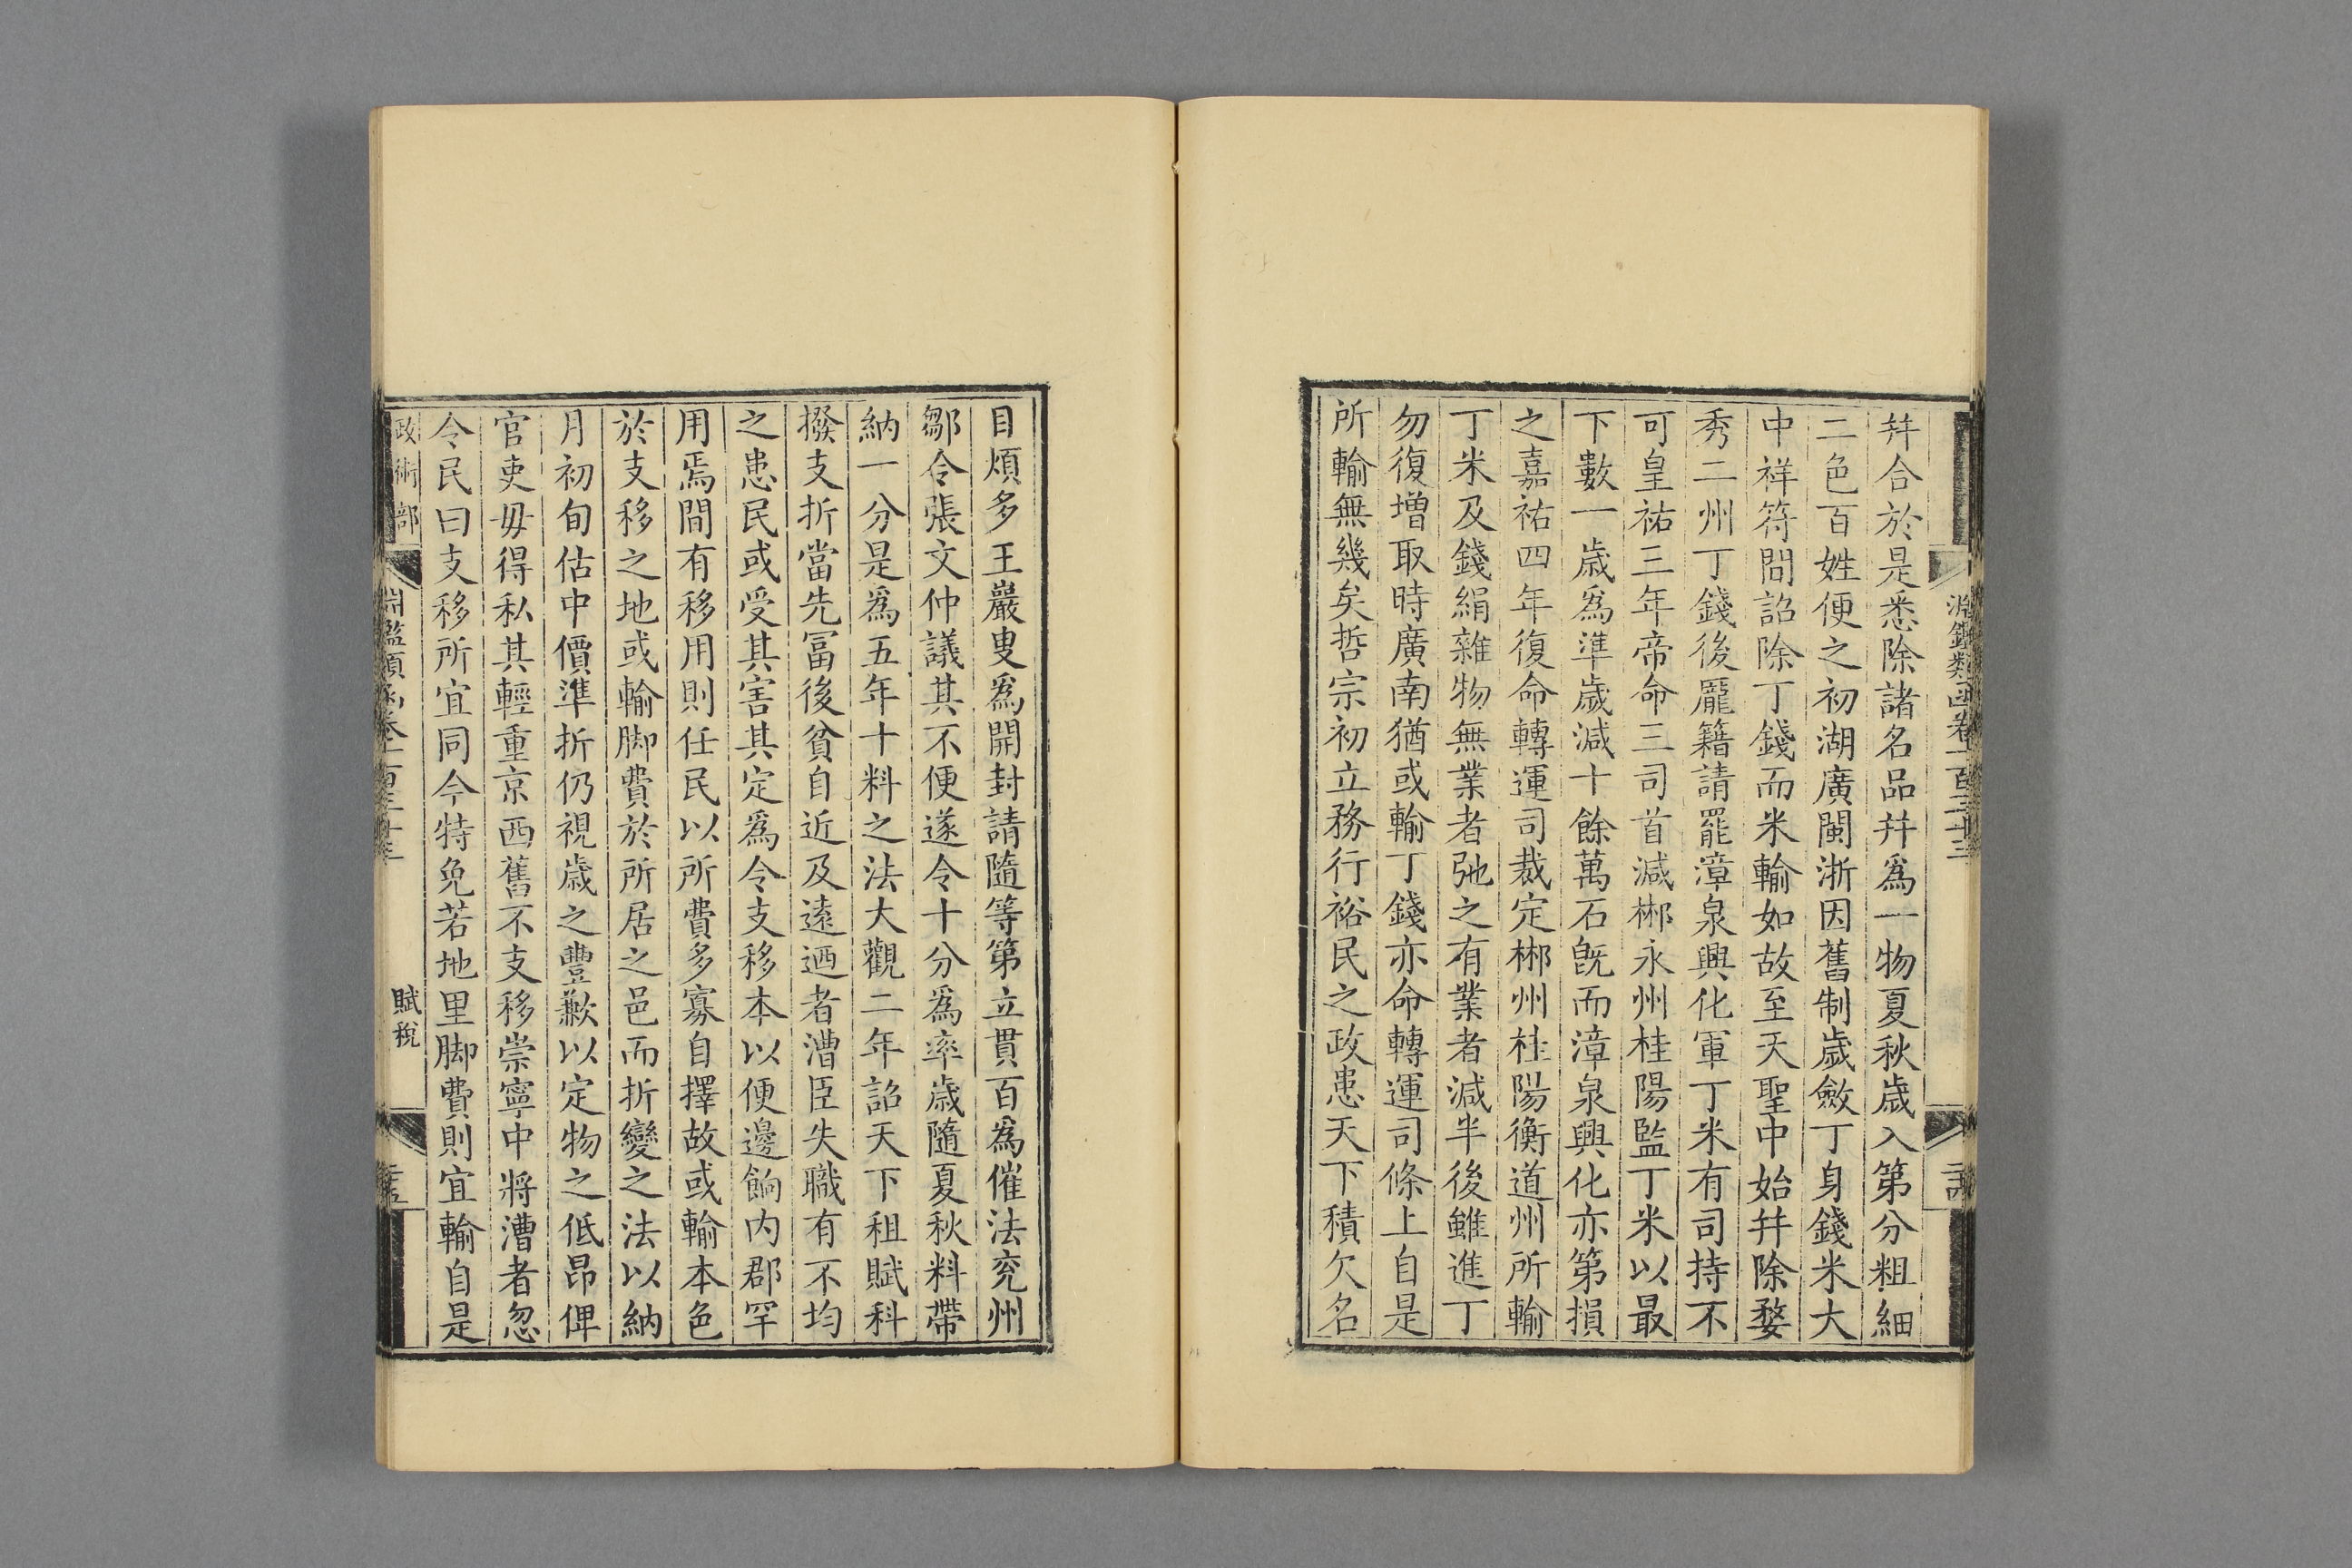 淵鑑類函卷一百三十三
幷合於是悉除諸名品幷爲一物夏秋歳入第分粗細
二色百姓便之初湖廣閩浙因舊制歳斂丁身錢米大
中祥符間詔除丁錢而米輸如故至天聖中始幷除婺
秀二州丁錢後龎籍請罷漳泉興化軍丁米有司持不
可皇祐三年帝命三司首減郴永州桂陽監丁米以最
下數一歳爲準歳減十餘萬石旣而漳泉興化亦第損
之嘉祐四年復命轉運司裁定郴州桂陽衡道州所輸
丁米及錢絹雜物無業者弛之有業者減半後雖進丁
勿復增取時廣南猶或輸丁錢亦命轉運司條上自是
所輸無幾矣哲宗初立務行裕民之政患天下積欠名
目煩多王巖叟爲開封請隨等第立貫百為催法兖州
鄒令張文仲議其不便遂令十分爲率歳隨夏秋料帶
納一分是爲五年十料之法大觀二年詔天下租賦科
撥支折當先冨後貧自近及遠迺者漕臣失職有不均
之患民或受其害其定爲令支移本以便邊餉内郡罕
用焉間有移用則任民以所費多寡自擇故或輸本色
於支移之地或輸脚費於所居之邑而折變之法以納
月初旬估中價準折仍視歳之豐歉以定物之低昂俾
官吏毋得私其輕重京西舊不支移崇寧中將漕者忽
令民曰支移所宜同今特免若地里脚費則宜輸自是
政術部
淵鑑類函卷一百三十三
賦稅